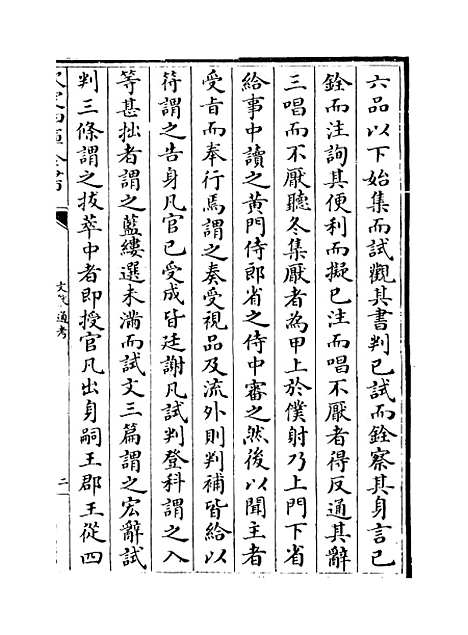 六品以下始集而試觀其書判已試而銓察其身言已
銓而注詢其便利而擬已注而唱不厭者得反通其辭
三唱而不厭聽冬集厭者為甲上於僕射乃上門下省
給事中讀之黃門侍郎省之侍中審之然後以聞主者
受旨而奉行焉謂之奏受視品及流外則判補皆給以
符謂之告身凡官已受成皆廷謝凡試判登科謂之入
等甚拙者謂之藍縷選未滿而試文三篇謂之宏辭試
判三條謂之拔萃中者即授官凡出身嗣王郡王從四
文獻通考
二